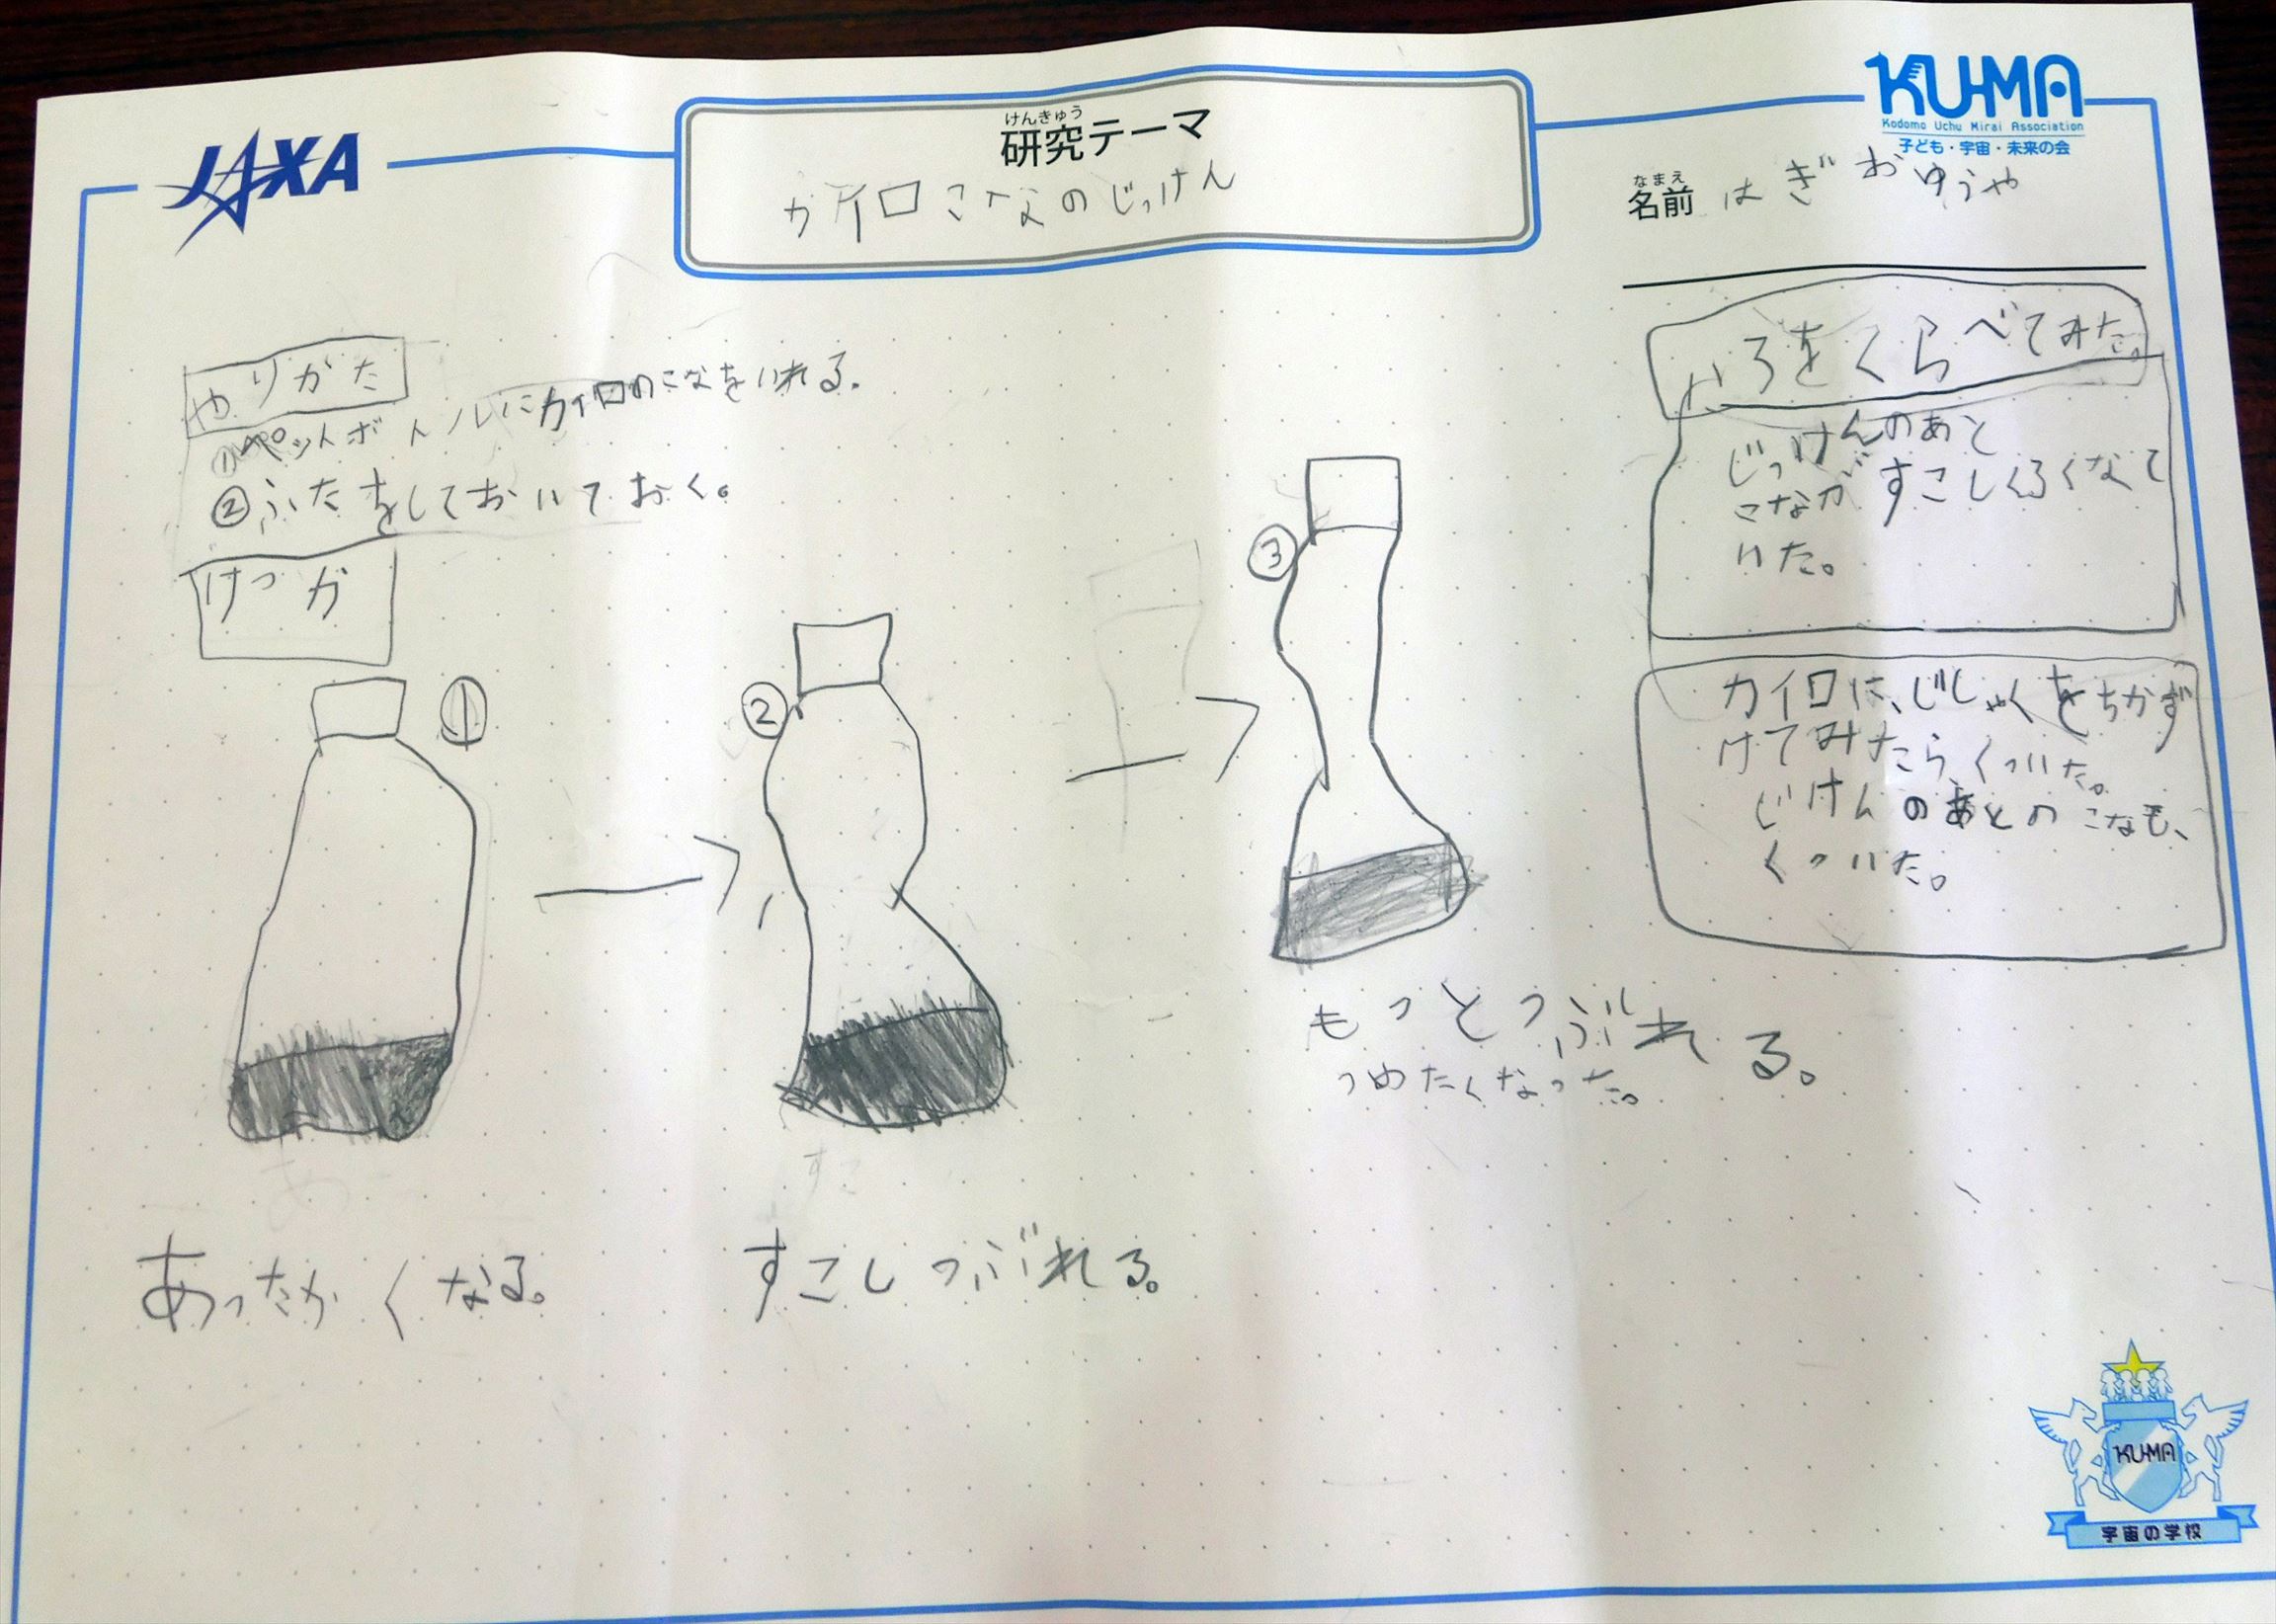 JAXA
けんきゅう
研究テーマ
カイロこなのじっけん
KU-MA
Kodomo Uchu Mirai Association
子ども・宇宙・未来の会
なまえ
名前 はぎおゆうや
やりかた
①ペットボトルにカイロのこなをいれる。
②ふたをしておいておく。
けっか
①
あったかくなる。
②
すこしつぶれる。
③
もっとつぶれる。
つめたくなった。
いろをくらべてみた。
じっけんのあと
こながすこしくろくなて
いた。
カイロに、じしゃくをちかず
けてみたら、くっいた。
じけんのあとのこなも、
くっいた。
KU-MA
宇宙の学校